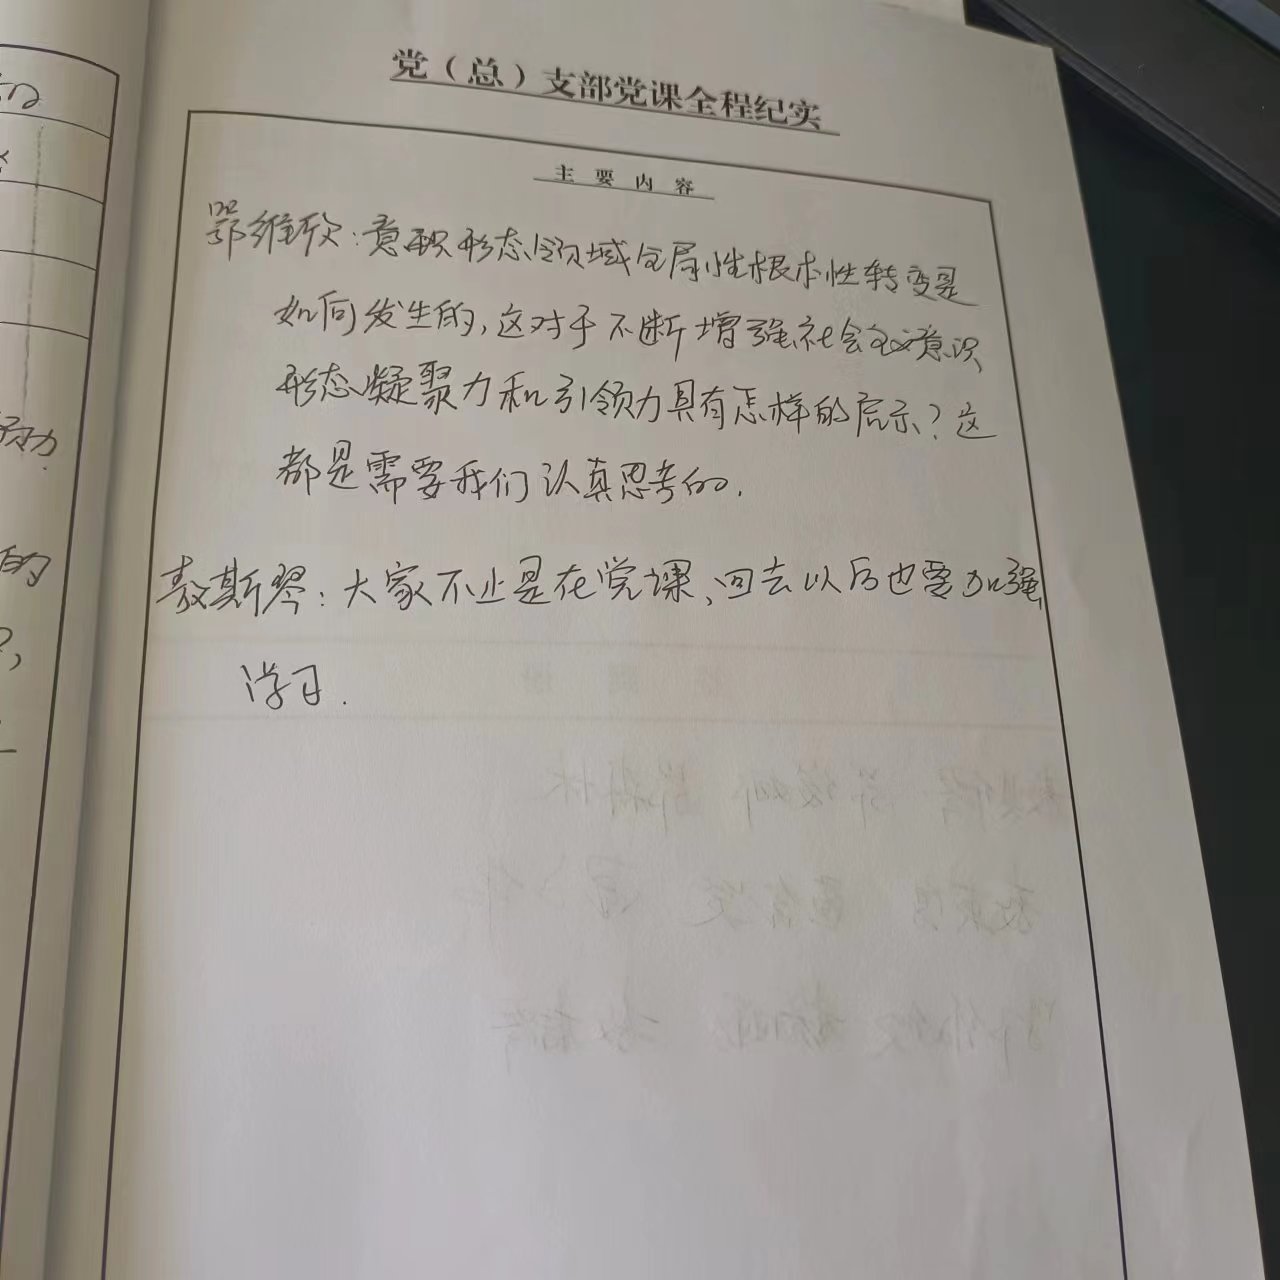 党（总）支部党课全程纪实
主要内容
鄂维欣：意识形态领域全局性根本性转变是
如何发生的，这对于不断增强社会主义意识
形态凝聚力和引领力具有怎样的启示？这
都是需要我们认真思考的．
敖斯琴：大家不止是在党课、回去以后也要加强
学习．
的